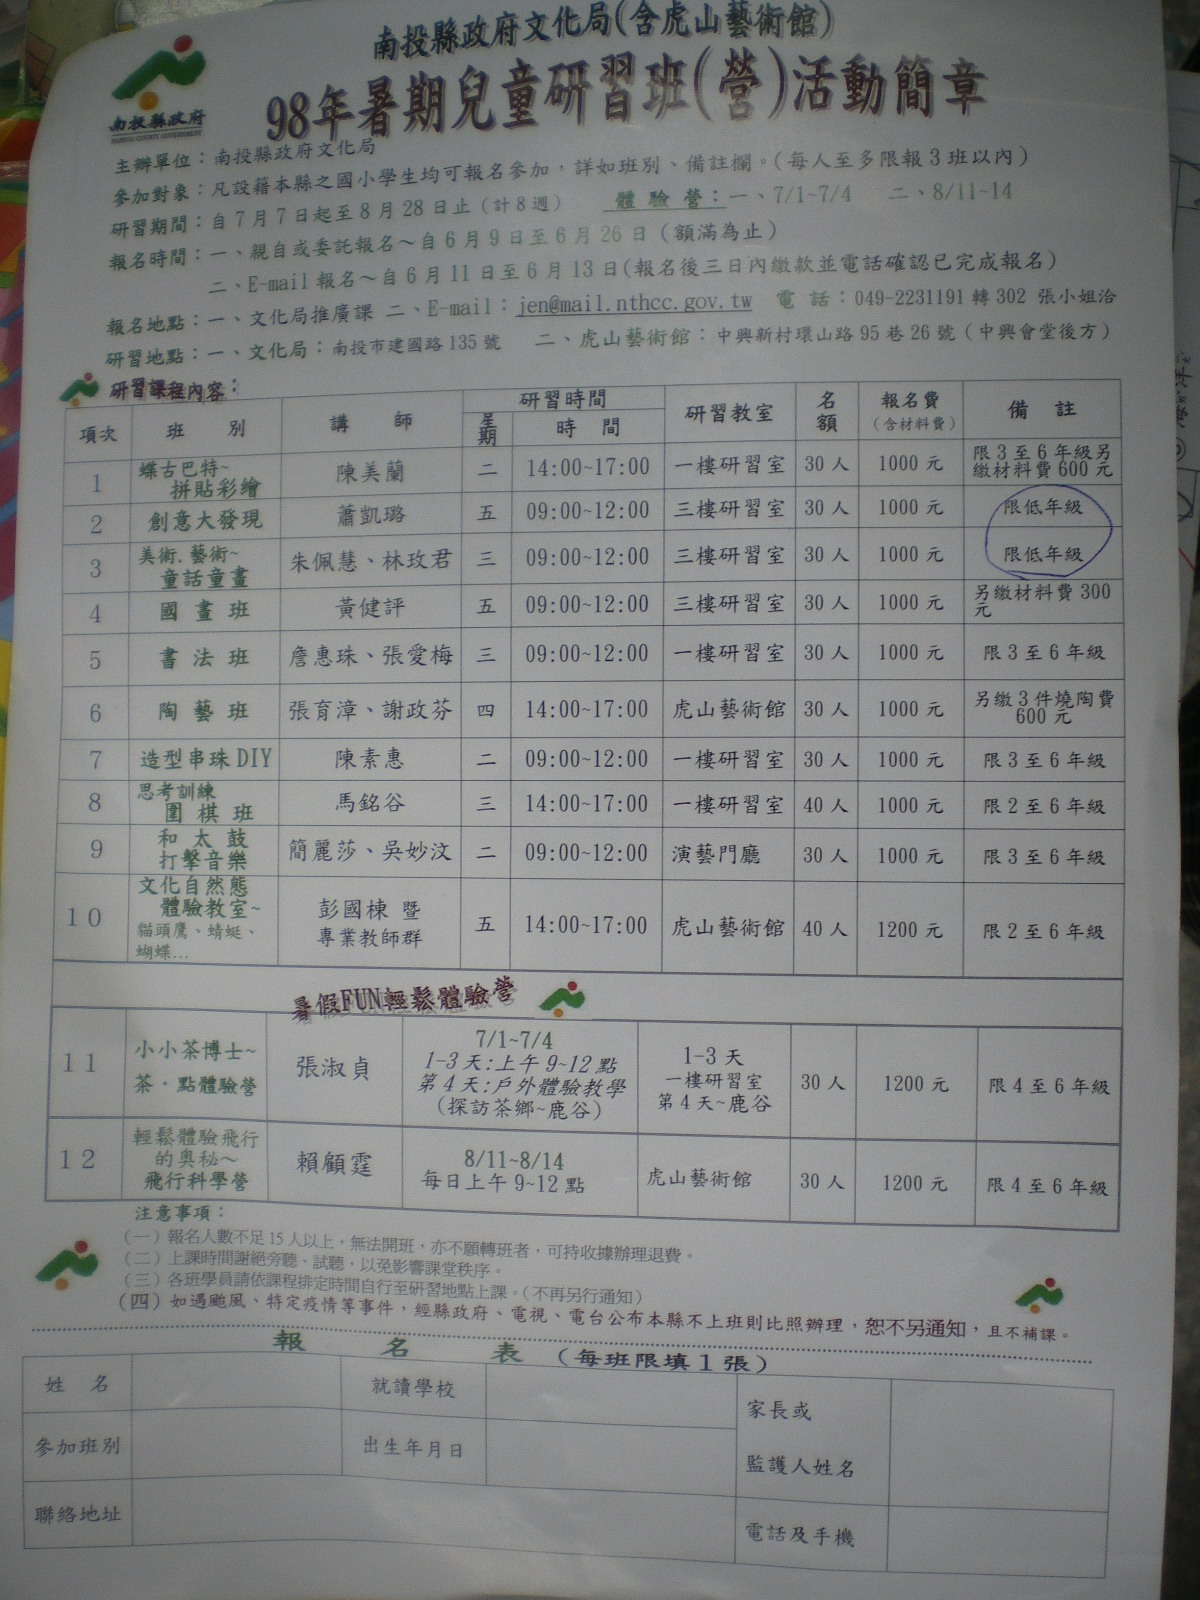 南投縣政府文化局(含虎山藝術館)
98年暑期兒童研習班(營)活動簡章
南投縣政府
NANTOU COUNTY GOVERNMENT
主辦單位：南投縣政府文化局
參加對象：凡設籍本縣之國小學生均可報名參加，詳如班別、備註欄。(每人至多限報3班以內)
研習期間：自7月7日起至8月28日止(計8週) 體驗營：一、7/1~7/4 二、8/11~14
報名時間：一、親自或委託報名～自6月9日至6月26日(額滿為止)
二、E-mail報名～自6月11日至6月13日(報名後三日內繳款並電話確認已完成報名)
報名地點：一、文化局推廣課 二、E-mail：jen@mail.nthcc.gov.tw 電話：049-2231191轉302 張小姐洽
研習地點：一、文化局：南投市建國路135號 二、虎山藝術館：中興新村環山路95巷26號(中興會堂後方)
研習課程內容：
項次 班別 講師 研習時間 星期 時間 研習教室 名額 報名費(含材料費) 備註
1 蝶古巴特~拼貼彩繪 陳美蘭 二 14:00~17:00 一樓研習室 30人 1000元 限3至6年級另繳材料費600元
2 創意大發現 蕭凱璐 五 09:00~12:00 三樓研習室 30人 1000元 限低年級
3 美術.藝術~童話童畫 朱佩慧、林玫君 三 09:00~12:00 三樓研習室 30人 1000元 限低年級
4 國畫班 黃健評 五 09:00~12:00 三樓研習室 30人 1000元 另繳材料費300元
5 書法班 詹惠珠、張愛梅 三 09:00~12:00 一樓研習室 30人 1000元 限3至6年級
6 陶藝班 張育漳、謝政芬 四 14:00~17:00 虎山藝術館 30人 1000元 另繳3件燒陶費600元
7 造型串珠DIY 陳素惠 二 09:00~12:00 一樓研習室 30人 1000元 限3至6年級
8 思考訓練圍棋班 馬銘谷 三 14:00~17:00 一樓研習室 40人 1000元 限2至6年級
9 和太鼓打擊音樂 簡麗莎、吳妙汶 二 09:00~12:00 演藝門廳 30人 1000元 限3至6年級
10 文化自然態體驗教室~貓頭鷹、蜻蜓、蝴蝶… 彭國棟暨專業教師群 五 14:00~17:00 虎山藝術館 40人 1200元 限2至6年級
暑假FUN輕鬆體驗營
11 小小茶博士~茶‧點體驗營 張淑貞 7/1~7/4 1-3天:上午9~12點 第4天:戶外體驗教學(探訪茶鄉~鹿谷) 1-3天一樓研習室 第4天~鹿谷 30人 1200元 限4至6年級
12 輕鬆體驗飛行的奧秘～飛行科學營 賴顧霆 8/11~8/14 每日上午9~12點 虎山藝術館 30人 1200元 限4至6年級
注意事項：
(一)報名人數不足15人以上，無法開班，亦不願轉班者，可持收據辦理退費。
(二)上課時間謝絕旁聽、試聽，以免影響課堂秩序。
(三)各班學員請依課程排定時間自行至研習地點上課。(不再另行通知)
(四)如遇颱風、特定疫情等事件，經縣政府、電視、電台公布本縣不上班則比照辦理，恕不另通知，且不補課。
報名表(每班限填1張)
姓名 就讀學校 家長或監護人姓名
參加班別 出生年月日
聯絡地址 電話及手機